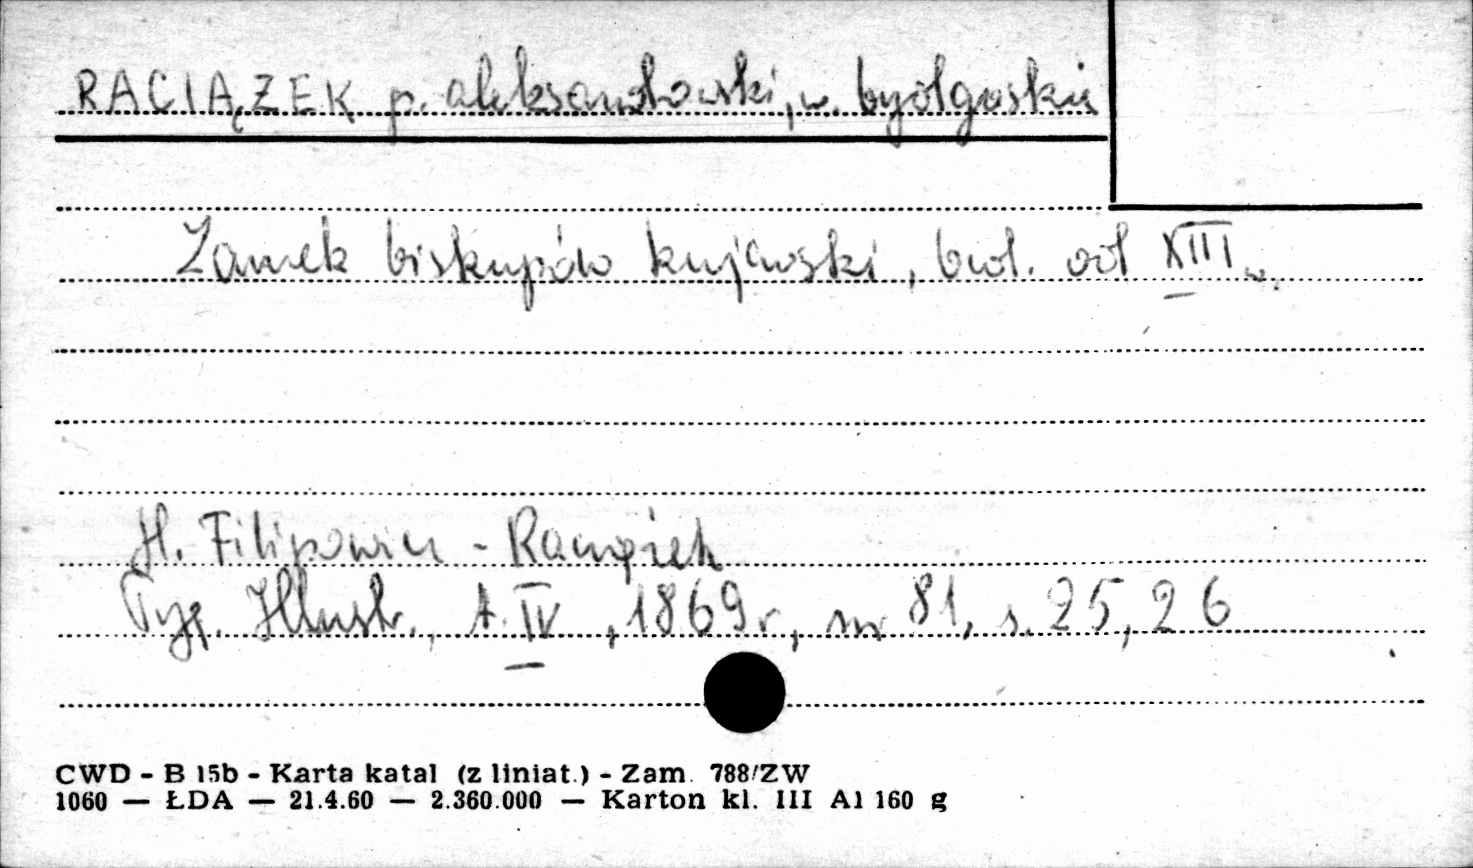 RACIĄŻEK p. aleksandrowski, w. bydgoskie
Zamek biskupów kujawski, bud. od XIII w.
H. Filipowicz - Raciążek
Tyg. Illustr., t. IV, 1869 r, nr 81, s. 25, 26
CWD - B 15b - Karta katal (z liniat.) - Zam. 788/ZW
1060 — ŁDA — 21.4.60 — 2.360.000 — Karton kl. III A1 160 g